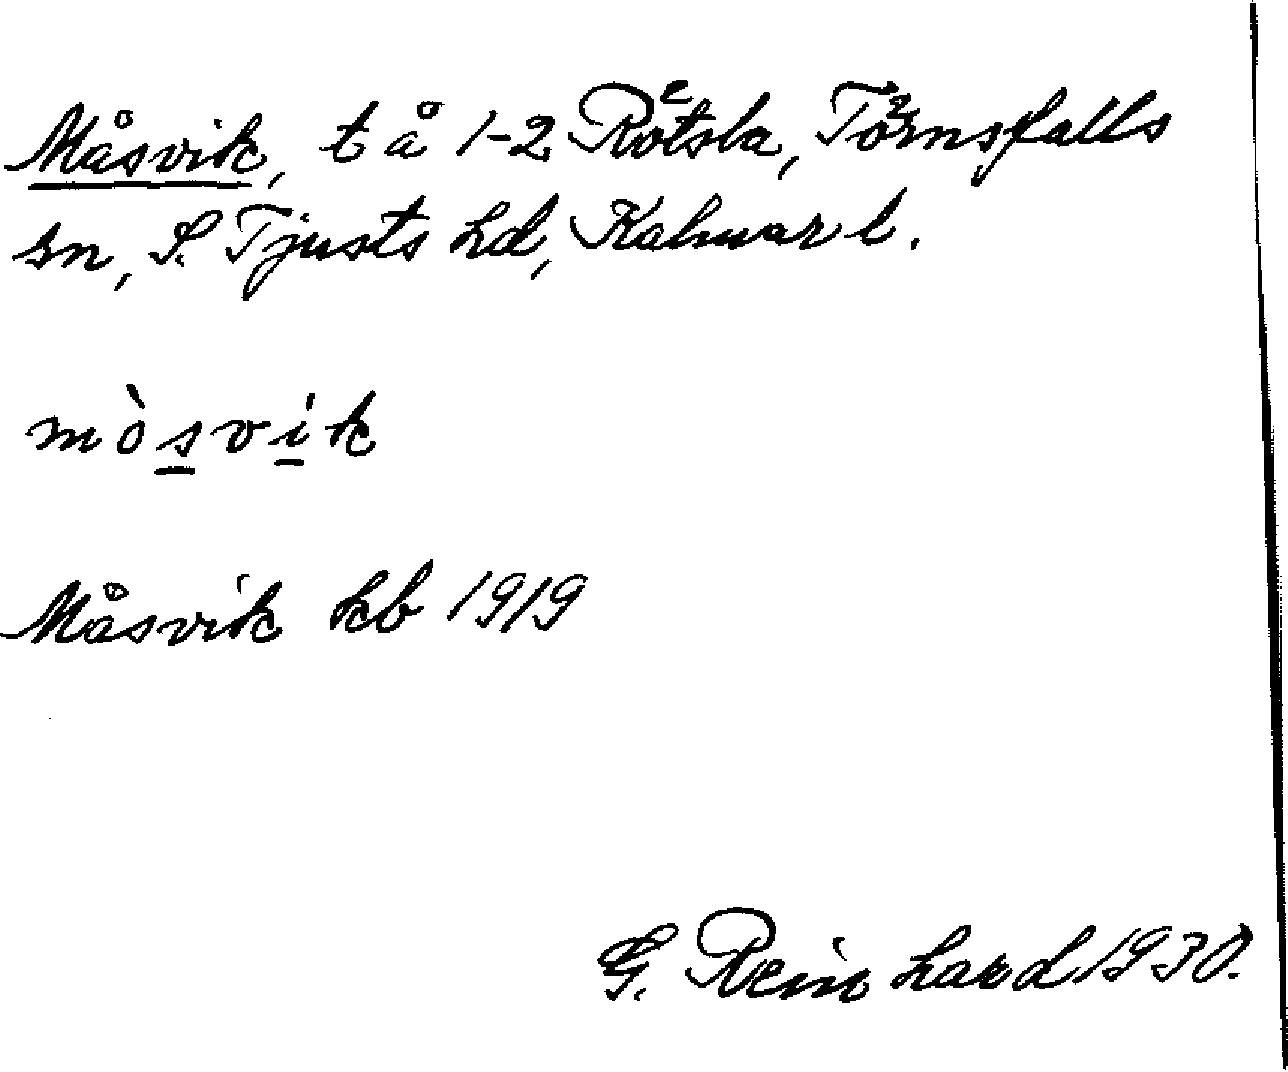 Måsvik, t å 1-2 Rötsla, Törnsfalls
sn, S. Tjusts hd, Kalmar l.
mòsvik
Måsvik kb 1919
G. Reinhard 1930.